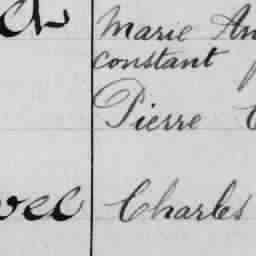 ch Marie An
constant
Pierre
vel Charles